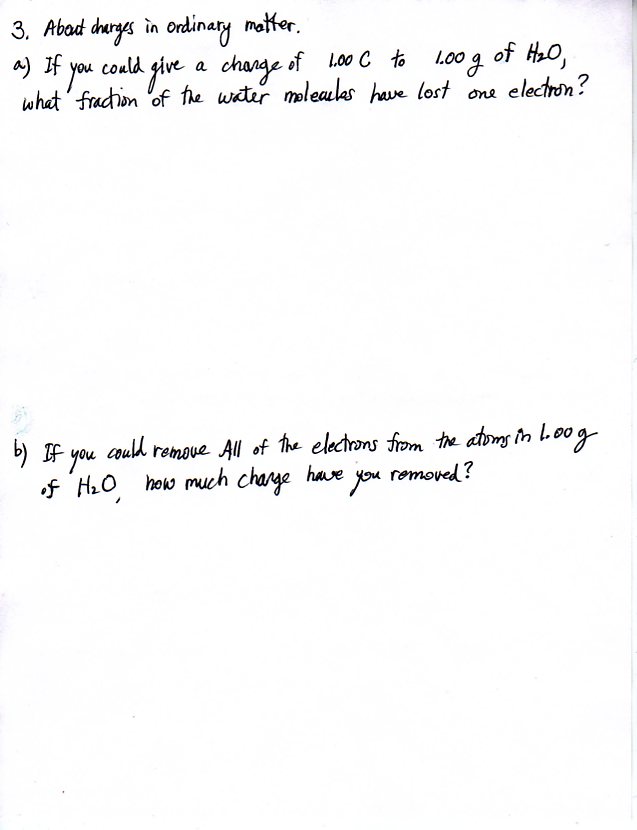 3. About charges in ordinary matter.
a) If you could give a charge of 1.00 C to 1.00 g of H₂O,
what fraction of the water molecules have lost one electron?
b) If you could remove All of the electrons from the atoms in 1.00 g
of H₂O, how much charge have you removed?